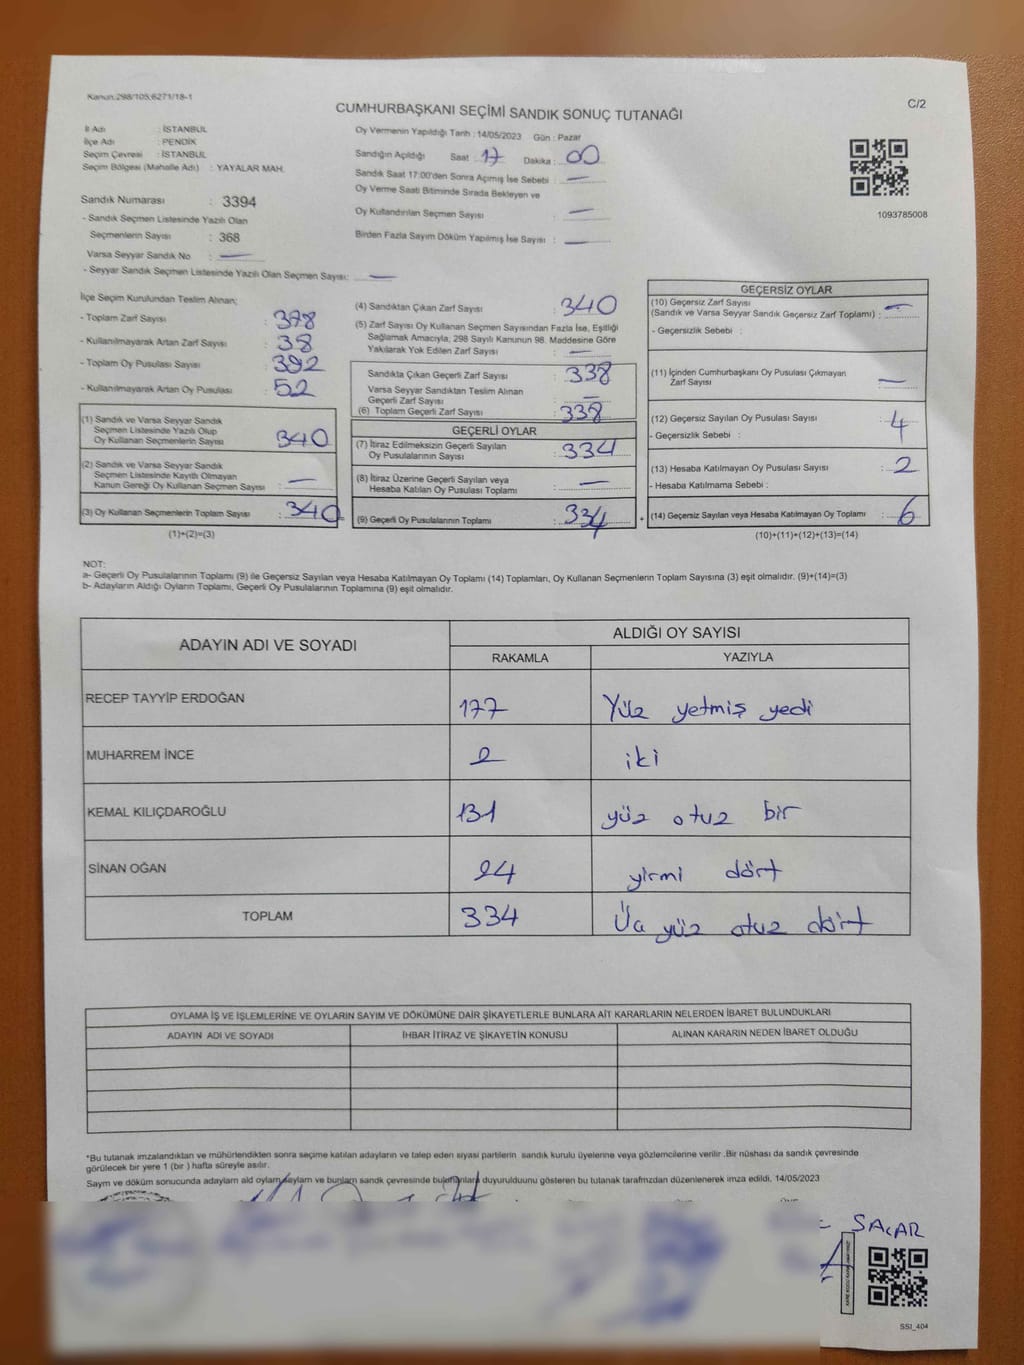 Kanun:298/105;6271/18-1
C/2
CUMHURBAŞKANI SEÇİMİ SANDIK SONUÇ TUTANAĞI
İl Adı : İSTANBUL
İlçe Adı : PENDİK
Seçim Çevresi : İSTANBUL
Seçim Bölgesi (Mahalle Adı) : YAYALAR MAH.
Sandık Numarası : 3394
- Sandık Seçmen Listesinde Yazılı Olan
Seçmenlerin Sayısı : 368
Varsa Seyyar Sandık No : —
- Seyyar Sandık Seçmen Listesinde Yazılı Olan Seçmen Sayısı: —
Oy Vermenin Yapıldığı Tarih : 14/05/2023 Gün : Pazar
Sandığın Açıldığı Saat : 17 Dakika : 00
Sandık Saat 17:00'den Sonra Açımış İse Sebebi : —
Oy Verme Saati Bitiminde Sırada Bekleyen ve
Oy Kullandırılan Seçmen Sayısı : —
Birden Fazla Sayım Döküm Yapılmış İse Sayısı : —
1093785008
İlçe Seçim Kurulundan Teslim Alınan;
- Toplam Zarf Sayısı : 378
- Kullanılmayarak Artan Zarf Sayısı : 38
- Toplam Oy Pusulası Sayısı : 392
- Kullanılmayarak Artan Oy Pusulası : 52
(1) Sandık ve Varsa Seyyar Sandık
Seçmen Listesinde Yazılı Olup
Oy Kullanan Seçmenlerin Sayısı : 340
(2) Sandık ve Varsa Seyyar Sandık
Seçmen Listesinde Kayıtlı Olmayan
Kanun Gereği Oy Kullanan Seçmen Sayısı : —
(3) Oy Kullanan Seçmenlerin Toplam Sayısı : 340
(1)+(2)=(3)
(4) Sandıktan Çıkan Zarf Sayısı : 340
(5) Zarf Sayısı Oy Kullanan Seçmen Sayısından Fazla İse, Eşitliği
Sağlamak Amacıyla, 298 Sayılı Kanunun 98. Maddesine Göre
Yakılarak Yok Edilen Zarf Sayısı : —
Sandıkta Çıkan Geçerli Zarf Sayısı : 338
Varsa Seyyar Sandıktan Teslim Alınan
Geçerli Zarf Sayısı : —
(6) Toplam Geçerli Zarf Sayısı : 338
GEÇERLİ OYLAR
(7) İtiraz Edilmeksizin Geçerli Sayılan
Oy Pusulalarının Sayısı : 334
(8) İtiraz Üzerine Geçerli Sayılan veya
Hesaba Katılan Oy Pusulası Toplamı : —
(9) Geçerli Oy Pusulalarının Toplamı : 334
GEÇERSİZ OYLAR
(10) Geçersiz Zarf Sayısı
(Sandık ve Varsa Seyyar Sandık Geçersiz Zarf Toplamı) : —
- Geçersizlik Sebebi :
(11) İçinden Cumhurbaşkanı Oy Pusulası Çıkmayan
Zarf Sayısı : —
(12) Geçersiz Sayılan Oy Pusulası Sayısı : 4
- Geçersizlik Sebebi :
(13) Hesaba Katılmayan Oy Pusulası Sayısı : 2
- Hesaba Katılmama Sebebi :
+ (14) Geçersiz Sayılan veya Hesaba Katılmayan Oy Toplamı : 6
(10)+(11)+(12)+(13)=(14)
NOT:
a- Geçerli Oy Pusulalarının Toplamı (9) ile Geçersiz Sayılan veya Hesaba Katılmayan Oy Toplamı (14) Toplamları, Oy Kullanan Seçmenlerin Toplam Sayısına (3) eşit olmalıdır. (9)+(14)=(3)
b- Adayların Aldığı Oyların Toplamı, Geçerli Oy Pusulalarının Toplamına (9) eşit olmalıdır.
ADAYIN ADI VE SOYADI ALDIĞI OY SAYISI
RAKAMLA YAZIYLA
RECEP TAYYİP ERDOĞAN 177 Yüz yetmiş yedi
MUHARREM İNCE 2 iki
KEMAL KILIÇDAROĞLU 131 yüz otuz bir
SİNAN OĞAN 24 yirmi dört
TOPLAM 334 Üç yüz otuz dört
OYLAMA İŞ VE İŞLEMLERİNE VE OYLARIN SAYIM VE DÖKÜMÜNE DAİR ŞİKAYETLERLE BUNLARA AİT KARARLARIN NELERDEN İBARET BULUNDUKLARI
ADAYIN ADI VE SOYADI İHBAR İTİRAZ VE ŞİKAYETİN KONUSU ALINAN KARARIN NEDEN İBARET OLDUĞU
*Bu tutanak imzalandıktan ve mühürlendikten sonra seçime katılan adayların ve talep eden siyasi partilerin sandık kurulu üyelerine veya gözlemcilerine verilir .Bir nüshası da sandık çevresinde
görülecek bir yere 1 (bir ) hafta süreyle asılır.
Sayım ve döküm sonucunda adayların aldığı oyların duyurulduunu gösteren bu tutanak tarafımızdan düzenlenerek imza edildi. 14/05/2023
SAÇAR
SSI_404